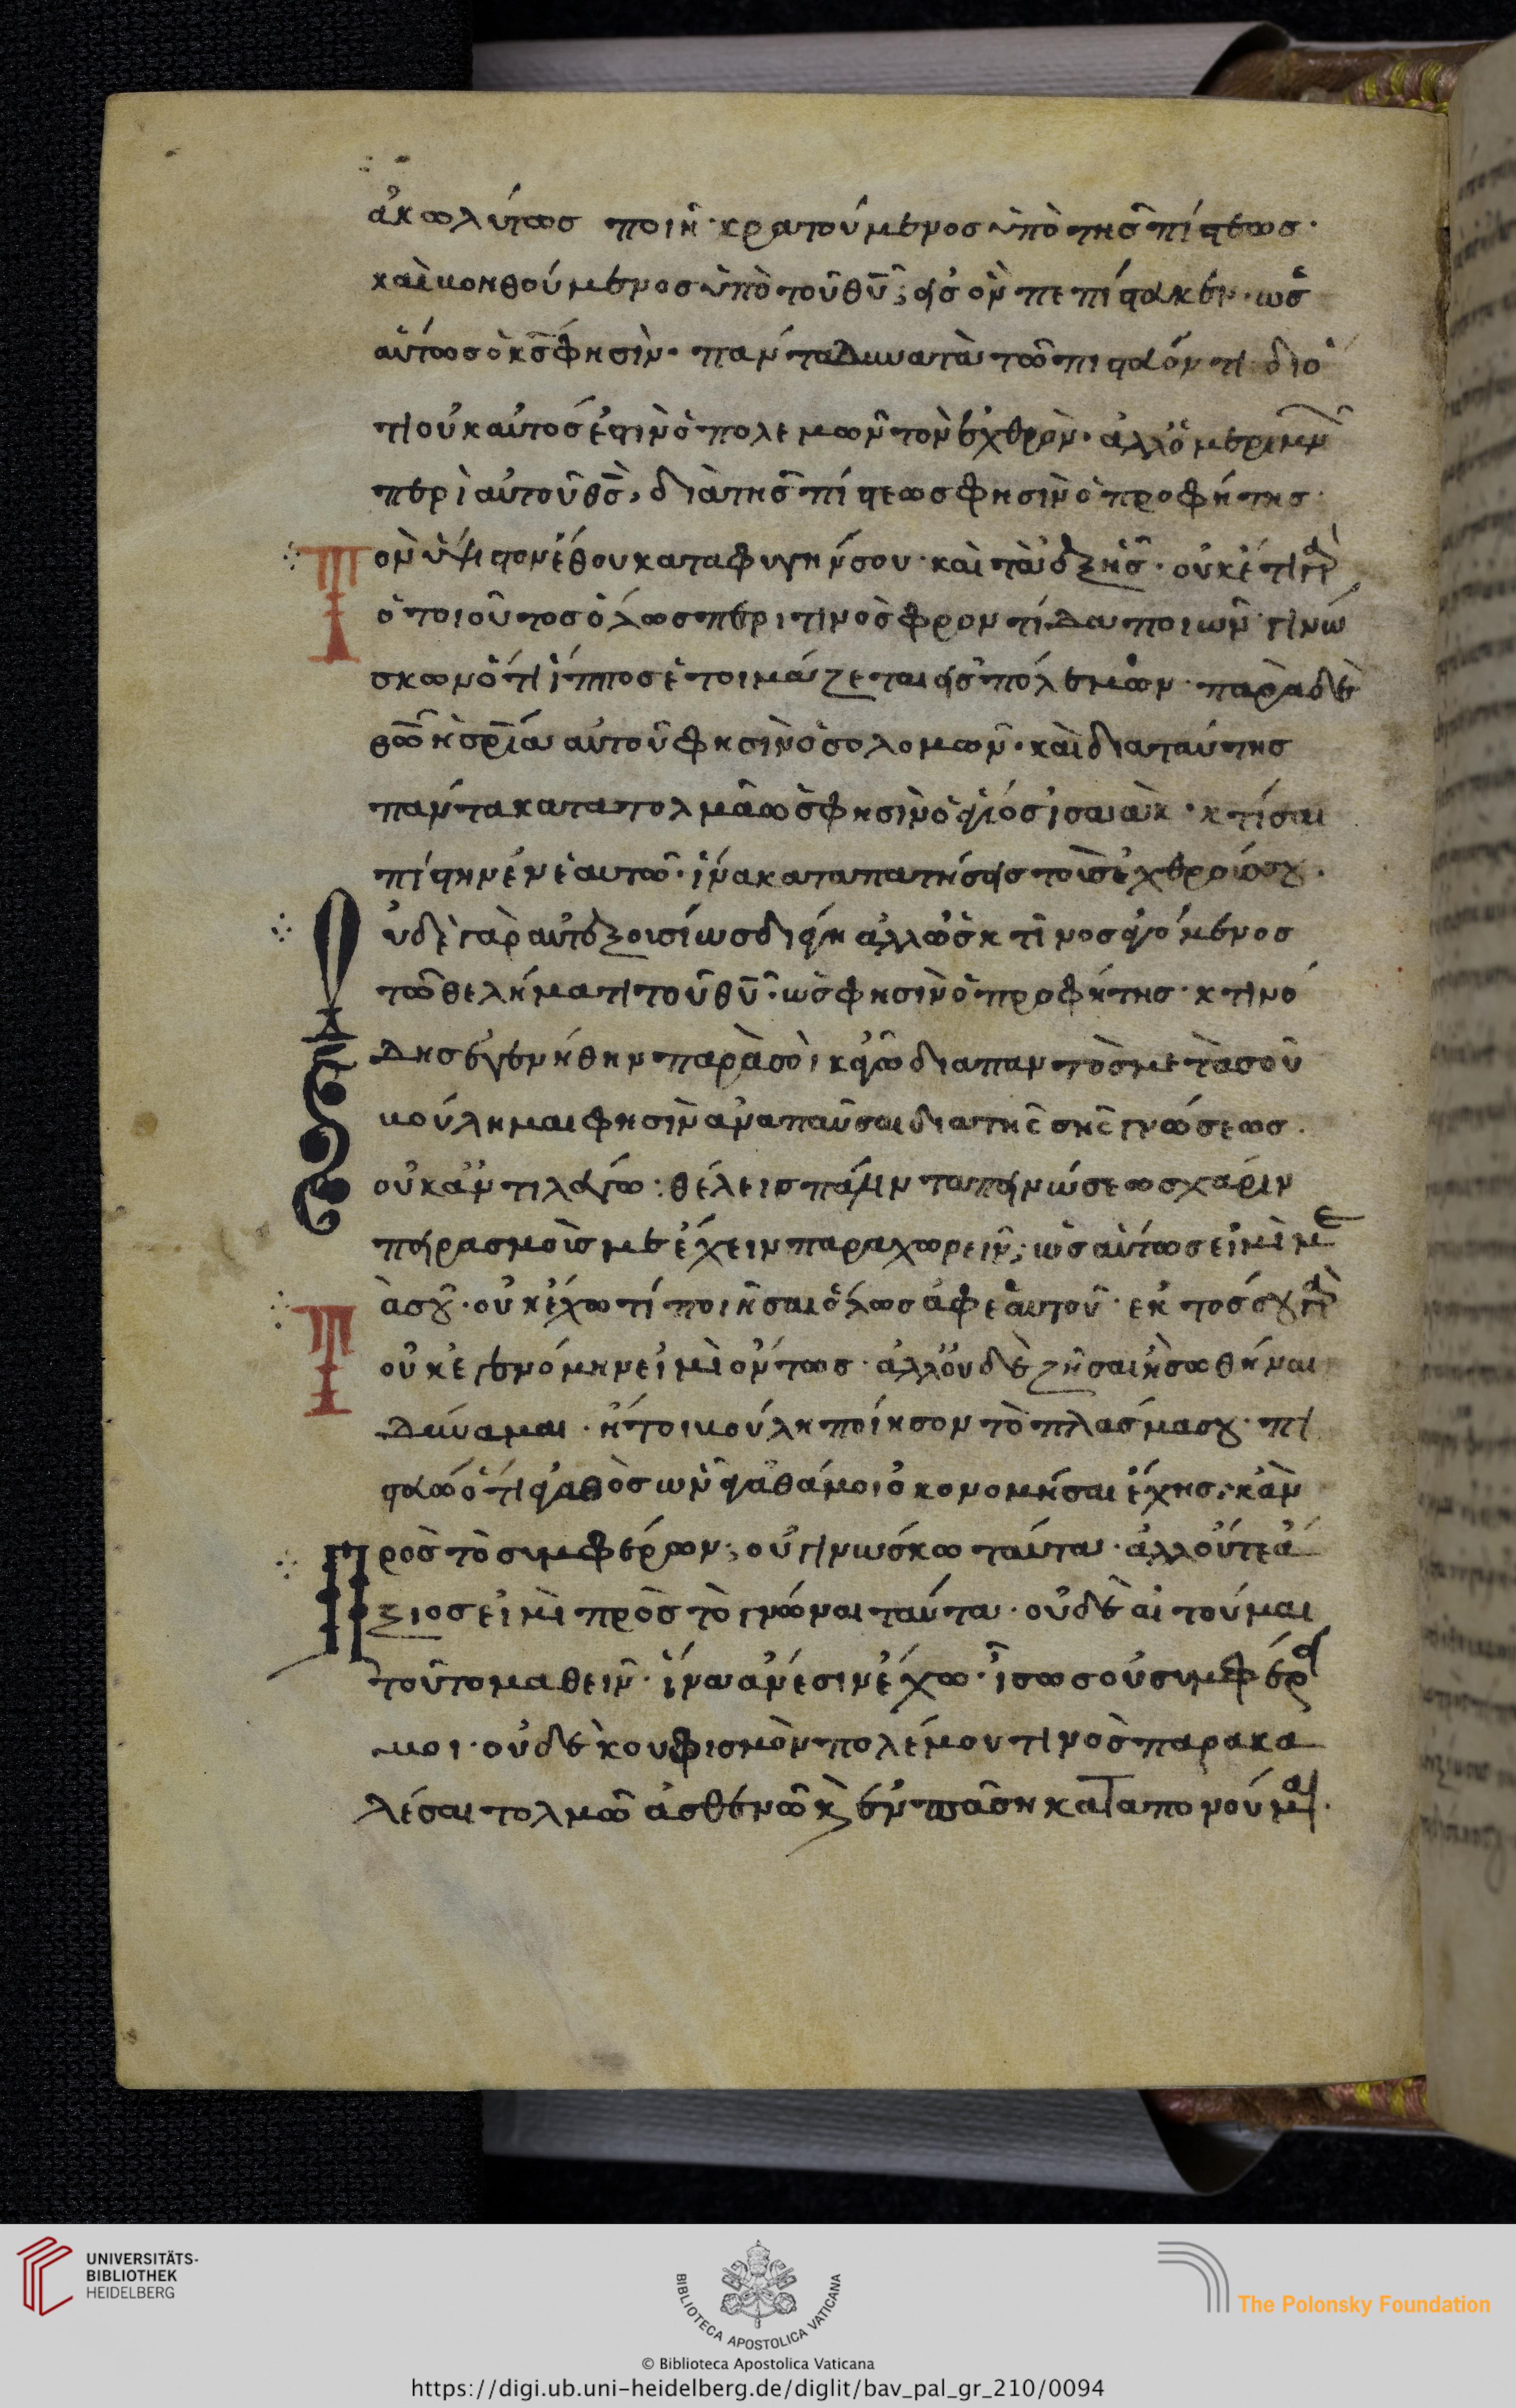 ἀκωλύτως ποιῆ· κρατούμενος ὑπὸ τῆς πίστεως·
καὶ βοηθούμενος ὑπὸ τοῦ θῦ; εἰς ὃν πεπίστευκεν· ὡς
αὕτως ὁ κς φησὶν· πάντα δυνατὰ τῶ πιστεύοντι διό
τι οὐκ αὐτός ἐστιν ὁ πολεμῶν τὸν ἐχθρὸν· ἀλλ' ὁ μεριμνῶν
περὶ αὐτοῦ θς, διὰ τῆς πίστεως φησὶν ὁ προφήτης·
Τὸν ὕψιστον ἔθου καταφυγήν σου· καὶ τὰ ἑξῆς· οὐκέτι γὰρ
ὁ τοιοῦτος ὅλως περί τινος φροντίδα ποιῶν· γινώ
σκων ὅτι ἵππος ἑτοιμάζεται εἰς πόλεμον· παρὰ δὲ
θῶ ἡ σρία αὐτοῦ φησὶν ὁ σολομῶν· καὶ διὰ ταύτης
πάντα κατατολμᾶ ὡς φησὶν ὁ ἅγιος ἰσαὰκ· κτίσαι
πίστιν ἐν ἑαυτῶ· ἵνα καταπατήσης τοὺς ἐχθρούς σου·
Οὐδὲ γὰρ αὐτεξουσίως διάγει ἀλλ' ὡς κτῆνος ἀγόμενος
τῶ θελήματι τοῦ θῦ· ὡς φησὶν ὁ προφήτης· κτηνώ
δης ἐγενήθην παρὰ σοὶ κἀγὼ διαπαντὸς μετὰ σοῦ
βούλη με φησὶν ἀναπαῦσαι διὰ τῆς σῆς γνώσεως·
οὐκ ἀντιλέγω· θέλεις πάλιν ταπεινώσεως χάριν
πειρασμοῖς με ἔχειν παραχωρεῖν; ὡσαύτως εἰμὶ με
τὰ σοῦ· οὐκ ἔχω τί ποιῆσαι ὅλως ἀφ' ἑαυτοῦ· ἐκτός σου γὰρ
Τ οὐκ ἐγενόμην εἰ μὴ ὄντως· ἀλλ' οὐδὲ ζῆσαι ἢ σωθῆναι
δύναμαι· εἴ τι βούλη ποίησον τὸ πλάσμα σου· πι
στεύω ὅτι ἀγαθὸς ὢν ἀγαθά μοι οἰκονομῆσαι ἔχης· κἂν
Πρὸς τὸ συμφέρον; οὐ γινώσκω ταῦτα· ἀλλ' οὔτε ἄ
ξιος εἰμὶ πρὸς τὸ γνῶναι ταῦτα· οὐδὲ αἰτοῦμαι
τοῦτο μαθεῖν· ἵνα ἄνεσιν ἔχω· ἴσως οὐ συμφέρει
μοι· οὐδὲ κουφισμὸν πολέμου τινὸς παρακα
λέσαι τολμῶ ἀσθενῶ κἂν ἐν πᾶσι καταπονοῦμαι·
UNIVERSITÄTS-
BIBLIOTHEK
HEIDELBERG
BIBLIOTECA APOSTOLICA VATICANA
The Polonsky Foundation
© Biblioteca Apostolica Vaticana
https://digi.ub.uni-heidelberg.de/diglit/bav_pal_gr_210/0094